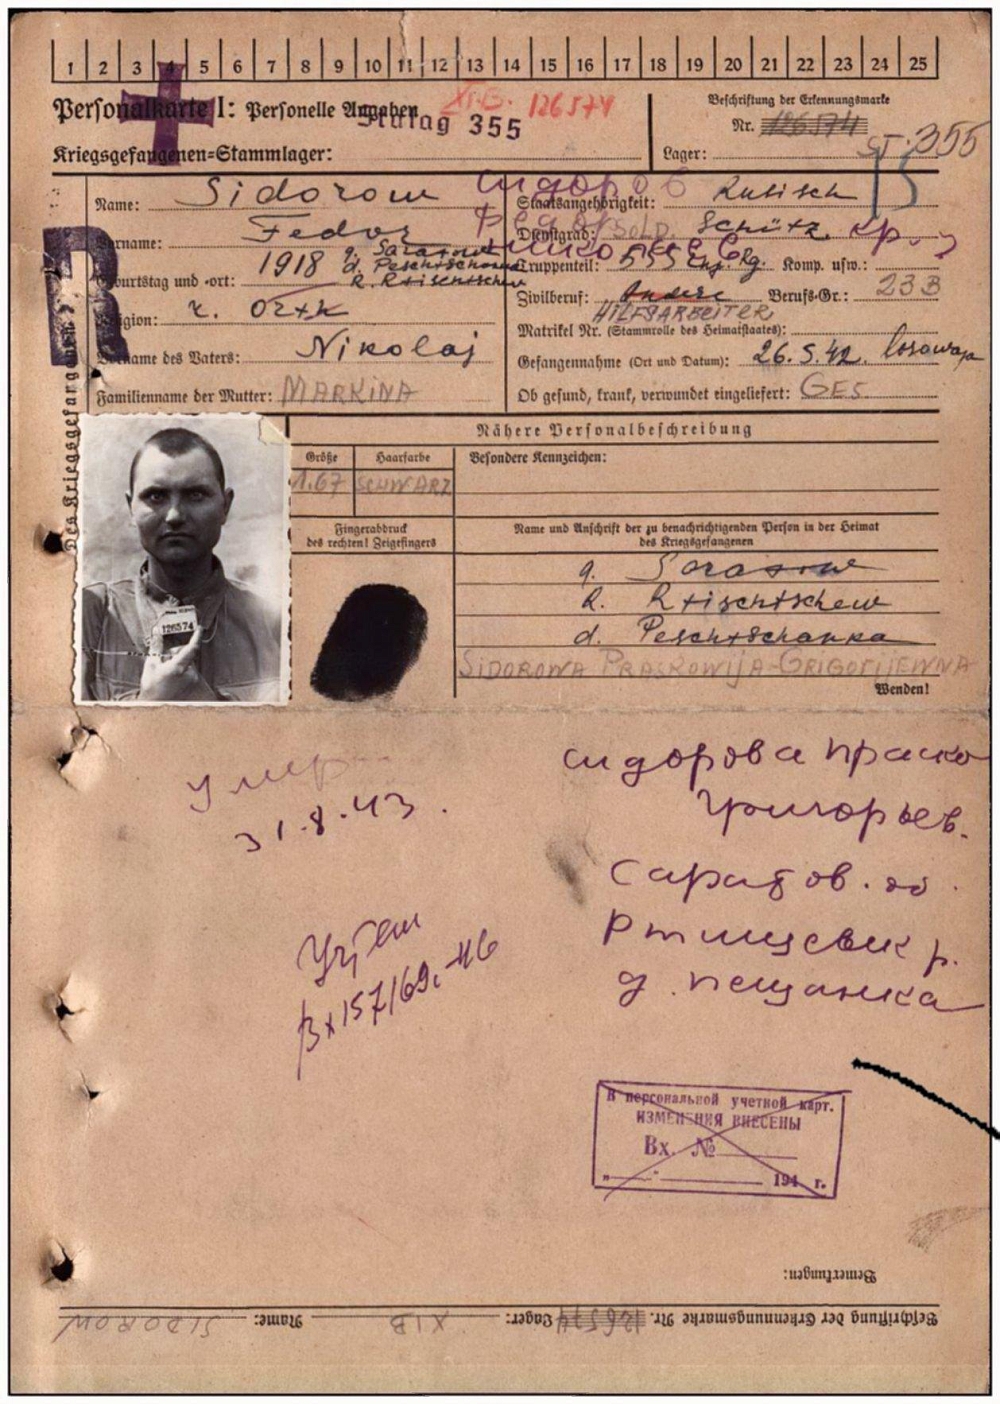 1 2 3 4 5 6 7 8 9 10 11 12 13 14 15 16 17 18 19 20 21 22 23 24 25
Personalkarte I: Personelle Angaben
XI.B. 126574
Stalag 355
Kriegsgefangenen=Stammlager:
Beschriftung der Erkennungsmarke
Nr. 126574
Lager: ST. 355
Des Kriegsgefangenen
Name: Sidorow
Vorname: Fedor
Geburtstag und -ort: 1918 g. Saratow
d. Peschtschanka
R. Rtischtschew
Religion: r. Ortk
Vorname des Vaters: Nikolaj
Familienname der Mutter: MARKINA
Сидоров
Федор
Николаев
Staatsangehörigkeit: Russisch
Dienstgrad: SOLD. Schütz. кр.
Truppenteil: 555 Rg. Komp. usw.:
Zivilberuf: Andere Berufs-Gr.: 23B
HILFSARBEITER
Matrikel Nr. (Stammrolle des Heimatstaates):
Gefangennahme (Ort und Datum): 26.5.42. Losowaja
Ob gesund, krank, verwundet eingeliefert: GES
Nähere Personalbeschreibung
Größe Haarfarbe Besondere Kennzeichen:
1.67 SCHWARZ
Fingerabdruck
des rechten! Zeigefingers
Name und Anschrift der zu benachrichtigenden Person in der Heimat
des Kriegsgefangenen
g. Saratow
R. Rtischtschew
d. Peschtschanka
SIDOROWA PRASKOWIJA-GRIGORIJEWNA
Wenden!
126574
умер
31.8.43.
Сидорова Праско
Григорьев.
Саратов. об.
Ртищевск р.
д. Пещанка
Учтен
Вх 157/69с-46
В персональной учетной карт.
ИЗМЕНЕНИЯ ВНЕСЕНЫ
Вх. №
194 г.
Bemerkungen:
Beschriftung der Erkennungsmarke Nr. 126574 Lager: XIB Name: SIDOROW